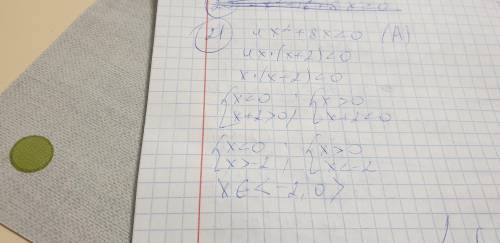 21 4x² + 8x < 0 (A)
4x·(x+2) < 0
x·(x+2) < 0
{x < 0 ; {x > 0
{x+2 > 0 ; {x+2 < 0
{x < 0 ; {x > 0
{x > -2 ; {x < -2
x ∈ < -2, 0 >